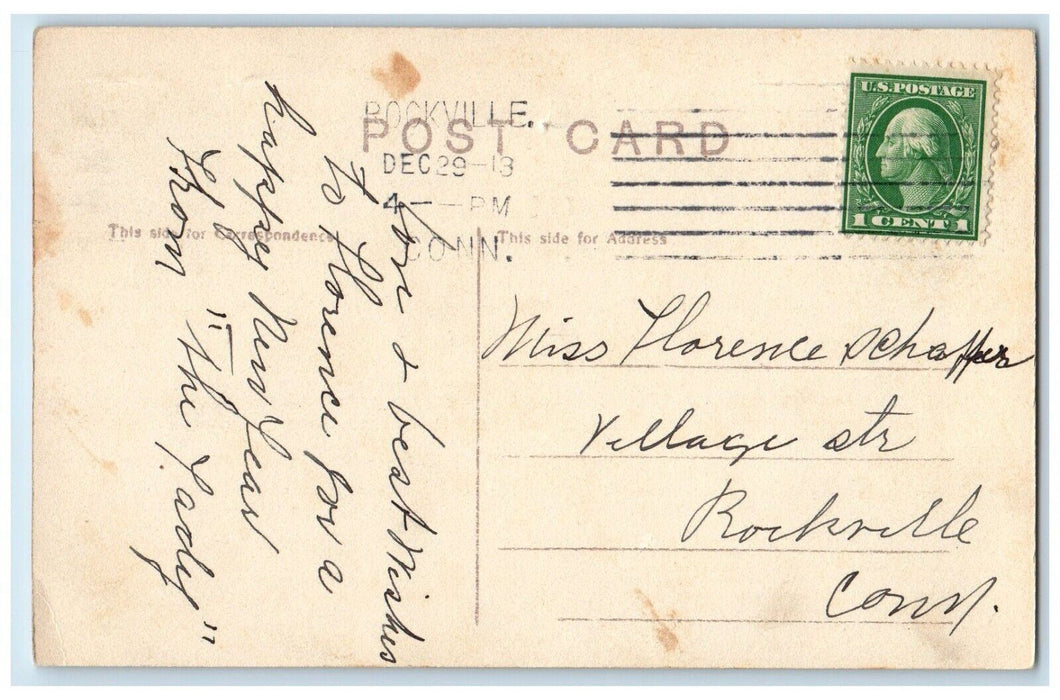 ROCKVILLE.
POST CARD
DEC 29-13
4 - PM
CONN.
U.S. POSTAGE
1 CENT 1
This side for Correspondence
This side for Address
Love & best Wishes
to Florence for a
happy New Year
From "The Lady"
Miss Florence Schaffer
Village Str
Rockville
Conn.